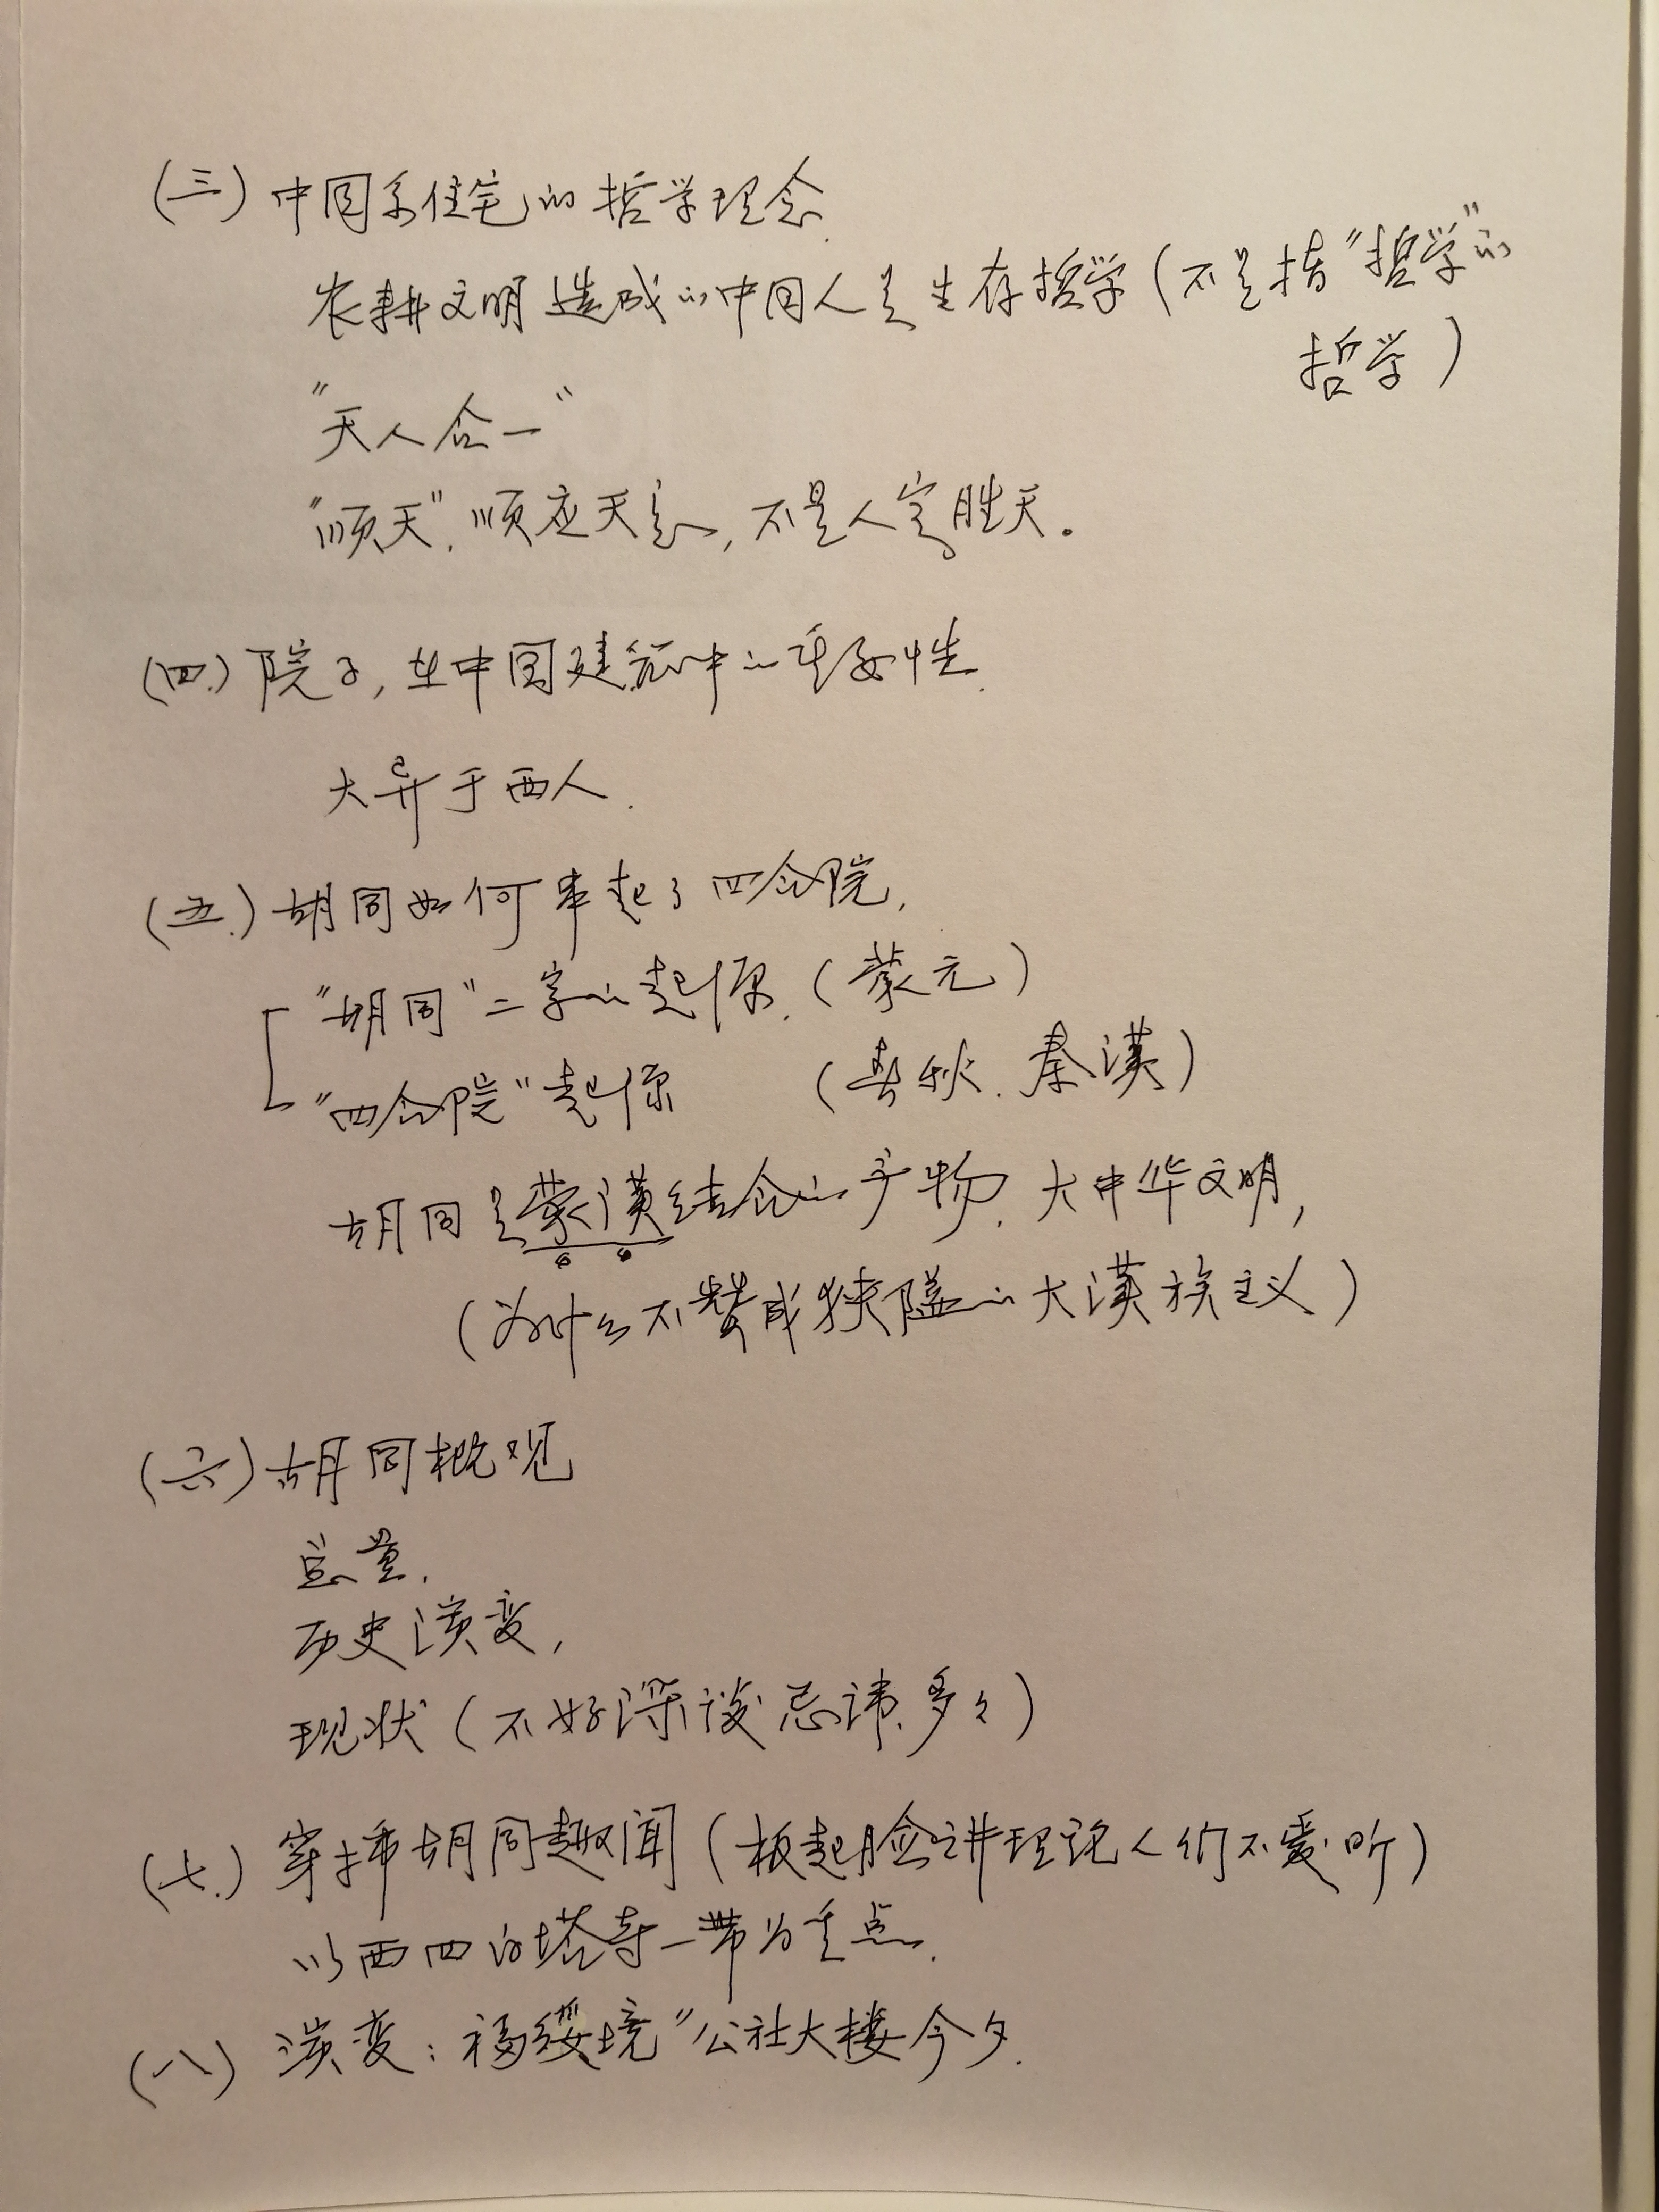 (三) 中国系住宅的哲学理念.
农耕文明造成的中国人是生存哲学(不是指"哲学"的
哲学)
"天人合一"
"顺天". 顺应天意, 不是人定胜天。
(四.) 院子, 在中国建筑中的重要性.
大异于西人.
(五.) 胡同如何串起了四合院,
"胡同"二字的起源. (蒙元)
"四合院"起源 (春秋. 秦漢)
胡同是蒙漢结合的产物. 大中华文明,
(为什么不赞成狭隘的大漢族主义)
(六) 胡同概观
总量.
历史演变,
现状(不好深谈. 忌讳多々)
(七.) 穿插胡同趣闻(板起脸讲理论人们不爱听)
以西四白塔寺一带为重点.
(八) 演变: 福绥境"公社大楼今夕.